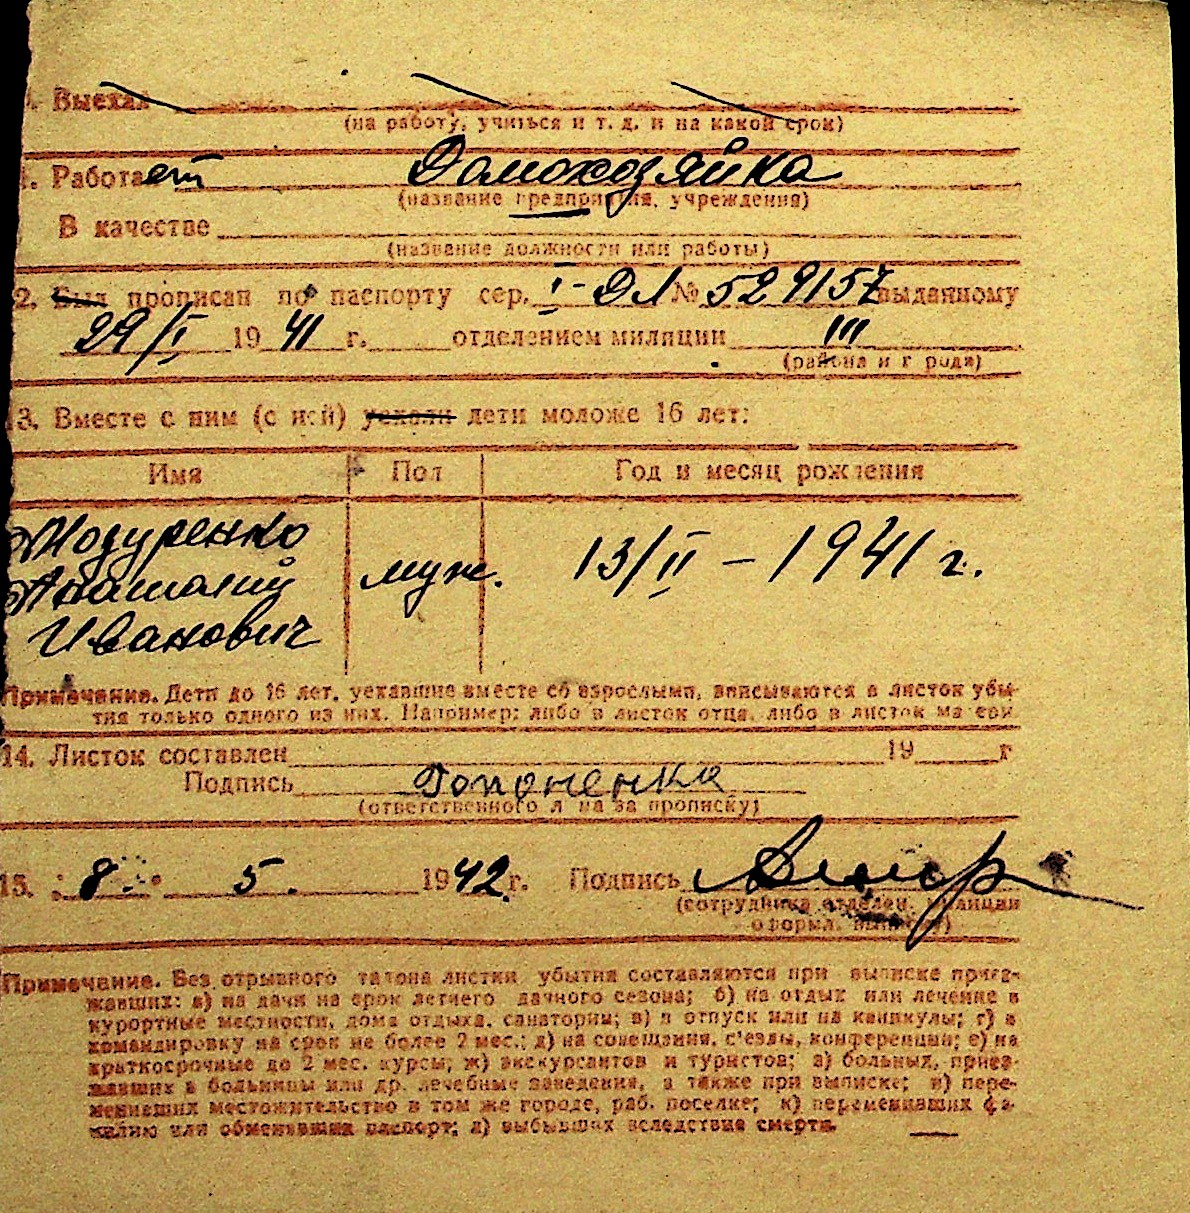 Выехал
(на работу, учиться и т. д. и на какой срок)
Работает Домохозяйка
(название предприятия, учреждения)
В качестве
(название должности или работы)
2. Был прописан по паспорту сер. I-ДЛ № 529157 выданному
29/I 1941 г. отделением милиции III
(района и города)
13. Вместе с ним (с ней) уехали дети моложе 16 лет:
Имя Пол Год и месяц рождения
Анатолий муж. 13/II – 1941 г.
Иванович
Примечание. Дети до 16 лет, уехавшие вместе со взрослыми, вписываются в листок убы-
тия только одного из них. Например: либо в листок отца, либо в листок матери
14. Листок составлен 19 г
Подпись
(ответственного лица за прописку)
15. 8. 5. 1942 г. Подпись
(сотрудника отделен. милиции
оформ. выписки)
Примечание. Без отрывного талона листки убытия составляются при выписке приез-
жавших: а) на дачи на срок летнего дачного сезона; б) на отдых или лечение в
курортные местности, дома отдыха, санатории; в) в отпуск или на каникулы; г) в
командировку на срок не более 2 мес.; д) на совещания, с'езды, конференции; е) на
краткосрочные до 2 мес. курсы; ж) экскурсантов и туристов; з) больных, приез-
жавших в больницы или др. лечебные заведения, а также при выписке; и) пере-
менивших местожительство в том же городе, раб. поселке; к) переменивших фа-
милию или обменявших паспорт; л) выбывших вследствие смерти.